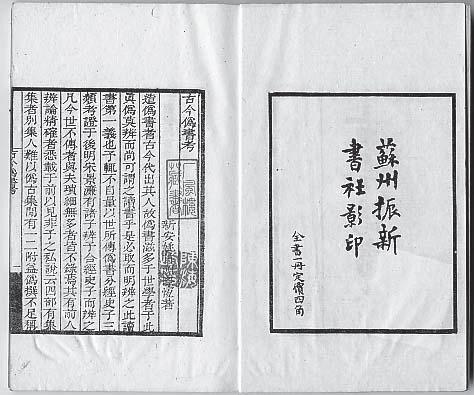 蘇州振新
書社影印
全書一冊定價四角
古今僞書考
新安姚際恆著
造僞書者古今代出其人故僞書滋多于世學者于此
眞僞莫辨而尚可謂之讀書乎是必取而明辨之此讀
書第一義也予輒不自量以世所傳僞書分經史子三
類考證于後明宋景濂有諸子辨予合經史子而辨之
凡今世不傳者與夫瑣細無多者皆不錄焉其有前人
辨論精確者悉載于前以見非予之私說云四部有集
集者別集人難以僞古集間有一二附益僞撰不足稱